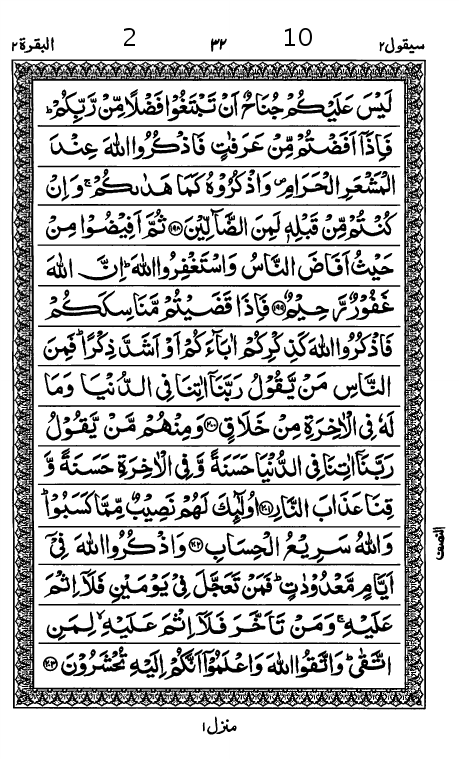 سيقول٢ 10 ٣٢ 2 البقرة٢
لَيْسَ عَلَيْكُمْ جُنَاحٌ اَنْ تَبْتَغُوْا فَضْلًا مِّنْ رَّبِّكُمْ ؕ
فَاِذَاۤ اَفَضْتُمْ مِّنْ عَرَفٰتٍ فَاذْكُرُوا اللّٰهَ عِنْدَ
الْمَشْعَرِ الْحَرَامِ ۪ وَاذْكُرُوْهُ كَمَا هَدٰىكُمْ ۚ وَاِنْ
كُنْتُمْ مِّنْ قَبْلِهٖ لَمِنَ الضَّآلِّيْنَ ﴿۱۹۸﴾ ثُمَّ اَفِيْضُوْا مِنْ
حَيْثُ اَفَاضَ النَّاسُ وَاسْتَغْفِرُوا اللّٰهَ ؕ اِنَّ اللّٰهَ
غَفُوْرٌ رَّحِيْمٌ ﴿۱۹۹﴾ فَاِذَا قَضَيْتُمْ مَّنَاسِكَكُمْ
فَاذْكُرُوا اللّٰهَ كَذِكْرِكُمْ اٰبَآءَكُمْ اَوْ اَشَدَّ ذِكْرًا ؕ فَمِنَ
النَّاسِ مَنْ يَّقُوْلُ رَبَّنَاۤ اٰتِنَا فِى الدُّنْيَا وَمَا
لَهٗ فِى الْاٰخِرَةِ مِنْ خَلَاقٍ ﴿۲۰۰﴾ وَمِنْهُمْ مَّنْ يَّقُوْلُ
رَبَّنَاۤ اٰتِنَا فِى الدُّنْيَا حَسَنَةً وَّفِى الْاٰخِرَةِ حَسَنَةً وَّ
قِنَا عَذَابَ النَّارِ ﴿۲۰۱﴾ اُولٰٓئِكَ لَهُمْ نَصِيْبٌ مِّمَّا كَسَبُوْا ؕ
وَاللّٰهُ سَرِيْعُ الْحِسَابِ ﴿۲۰۲﴾ وَاذْكُرُوا اللّٰهَ فِىْۤ
اَيَّامٍ مَّعْدُوْدٰتٍ ؕ فَمَنْ تَعَجَّلَ فِىْ يَوْمَيْنِ فَلَاۤ اِثْمَ
عَلَيْهِ ۚ وَمَنْ تَاَخَّرَ فَلَاۤ اِثْمَ عَلَيْهِ ۙ لِمَنِ
اتَّقٰى ؕ وَاتَّقُوا اللّٰهَ وَاعْلَمُوْۤا اَنَّكُمْ اِلَيْهِ تُحْشَرُوْنَ ﴿۲۰۳﴾
النصف
منزل١